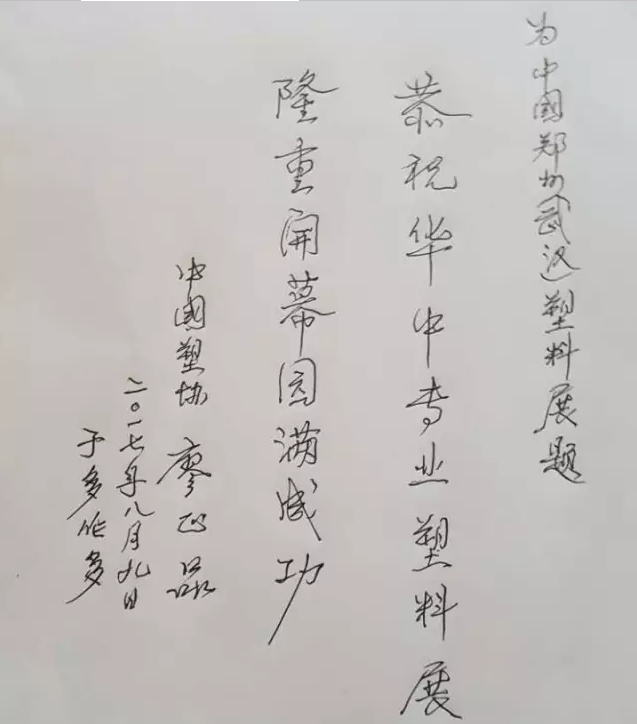 为中國郑州(武汉)塑料展题
恭祝华中专业塑料展
隆重開幕园满成功
中國塑协 廖正品
二〇一七年八月九日
于多伦多